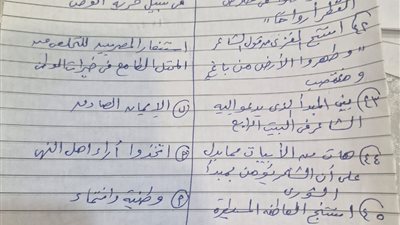 القطر أرواحا"
في سبيل حرية الوطن
٤٢ استنتج المغزى من قول الشاعر
"وطهروا الأرض من باغ
ومغتصب
استنفار المصريين للتخلص من
المحتل الطامع في خيرات الوطن
٤٣ بين المبدأ الذي يدعو إليه
الشاعر في البيت الرابع
الإيمان الصادق
٤٤ هات من الأبيات ما يدل
على أن الشاعر يؤمن بمبدأ
الشورى
اتخذوا آراء أهل النهى
٤٥ استنتج العاطفة المسيطرة
وطنية وانتماء